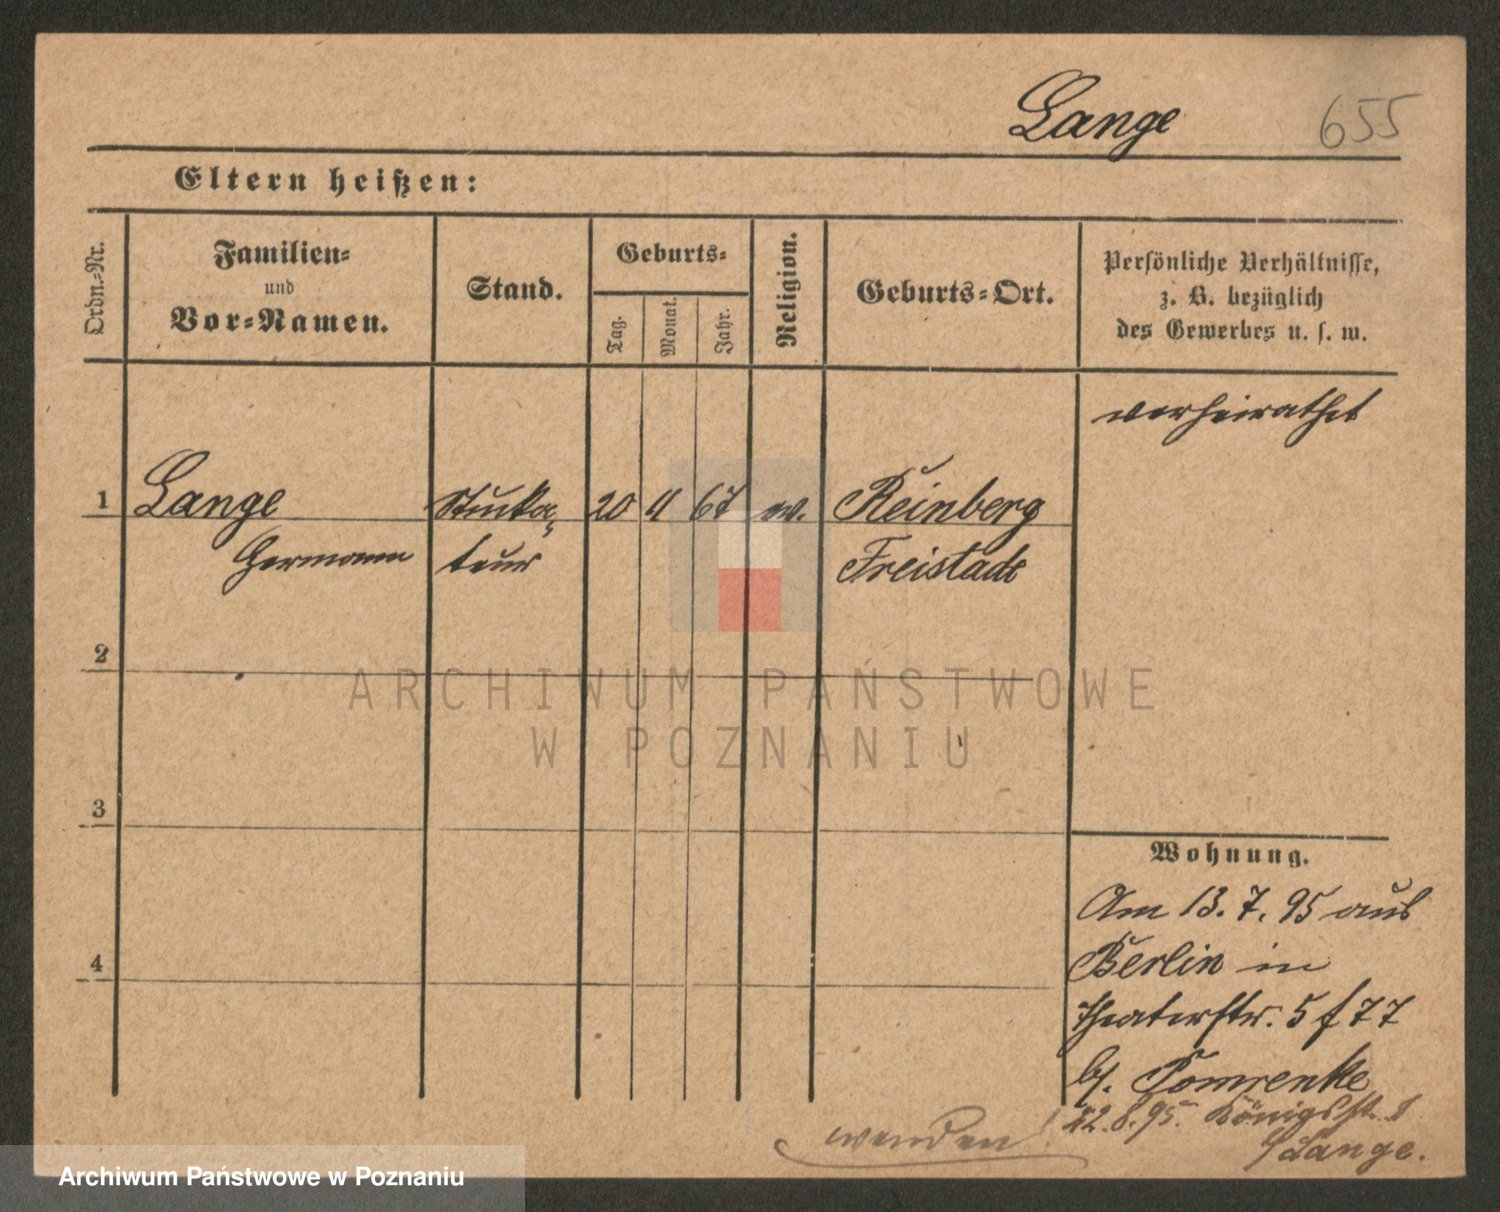 Lange 655
Eltern heißen:
Ordn.-Nr.
Familien-
und
Vor-Namen.
Stand.
Geburts-
Tag.
Monat.
Jahr.
Religion.
Geburts-Ort.
Persönliche Verhältnisse,
z. B. bezüglich
des Gewerbes u. s. w.
verheirathet
1 Lange Stucka- 20 11 67 ev. Reinberg
Hermann teur Freistadt
2
ARCHIWUM PAŃSTWOWE
W POZNANIU
3
Wohnung.
4
Am 13. 7. 95 aus
Berlin in
Theaterstr. 5 f 77
b/. Pomrenke
22.8.95. Königsst. 8
f Lange.
wenden!
Archiwum Państwowe w Poznaniu